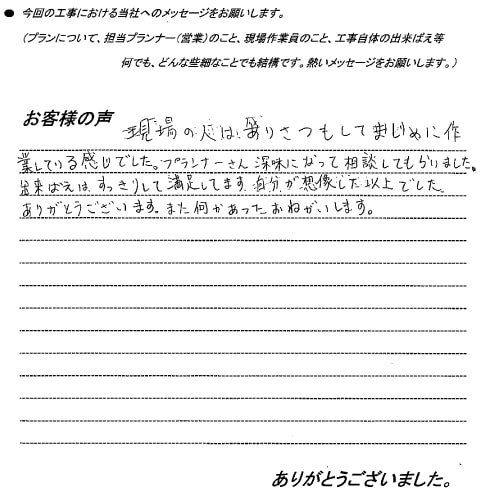 ● 今回の工事における当社へのメッセージをお願いします。
(プランについて、担当プランナー(営業)のこと、現場作業員のこと、工事自体の出来ばえ等
何でも、どんな些細なことでも結構です。熱いメッセージをお願いします。)
お客様の声
現場の人は、ありさつもしてまじめに作
業している感じでした。プランナーさん 深味になって相談してもらいました。
出来ばえは、すっきりして満足してます 自分が想像した以上でした
ありがとうございます。また何かあったおねがいします。
ありがとうございました。